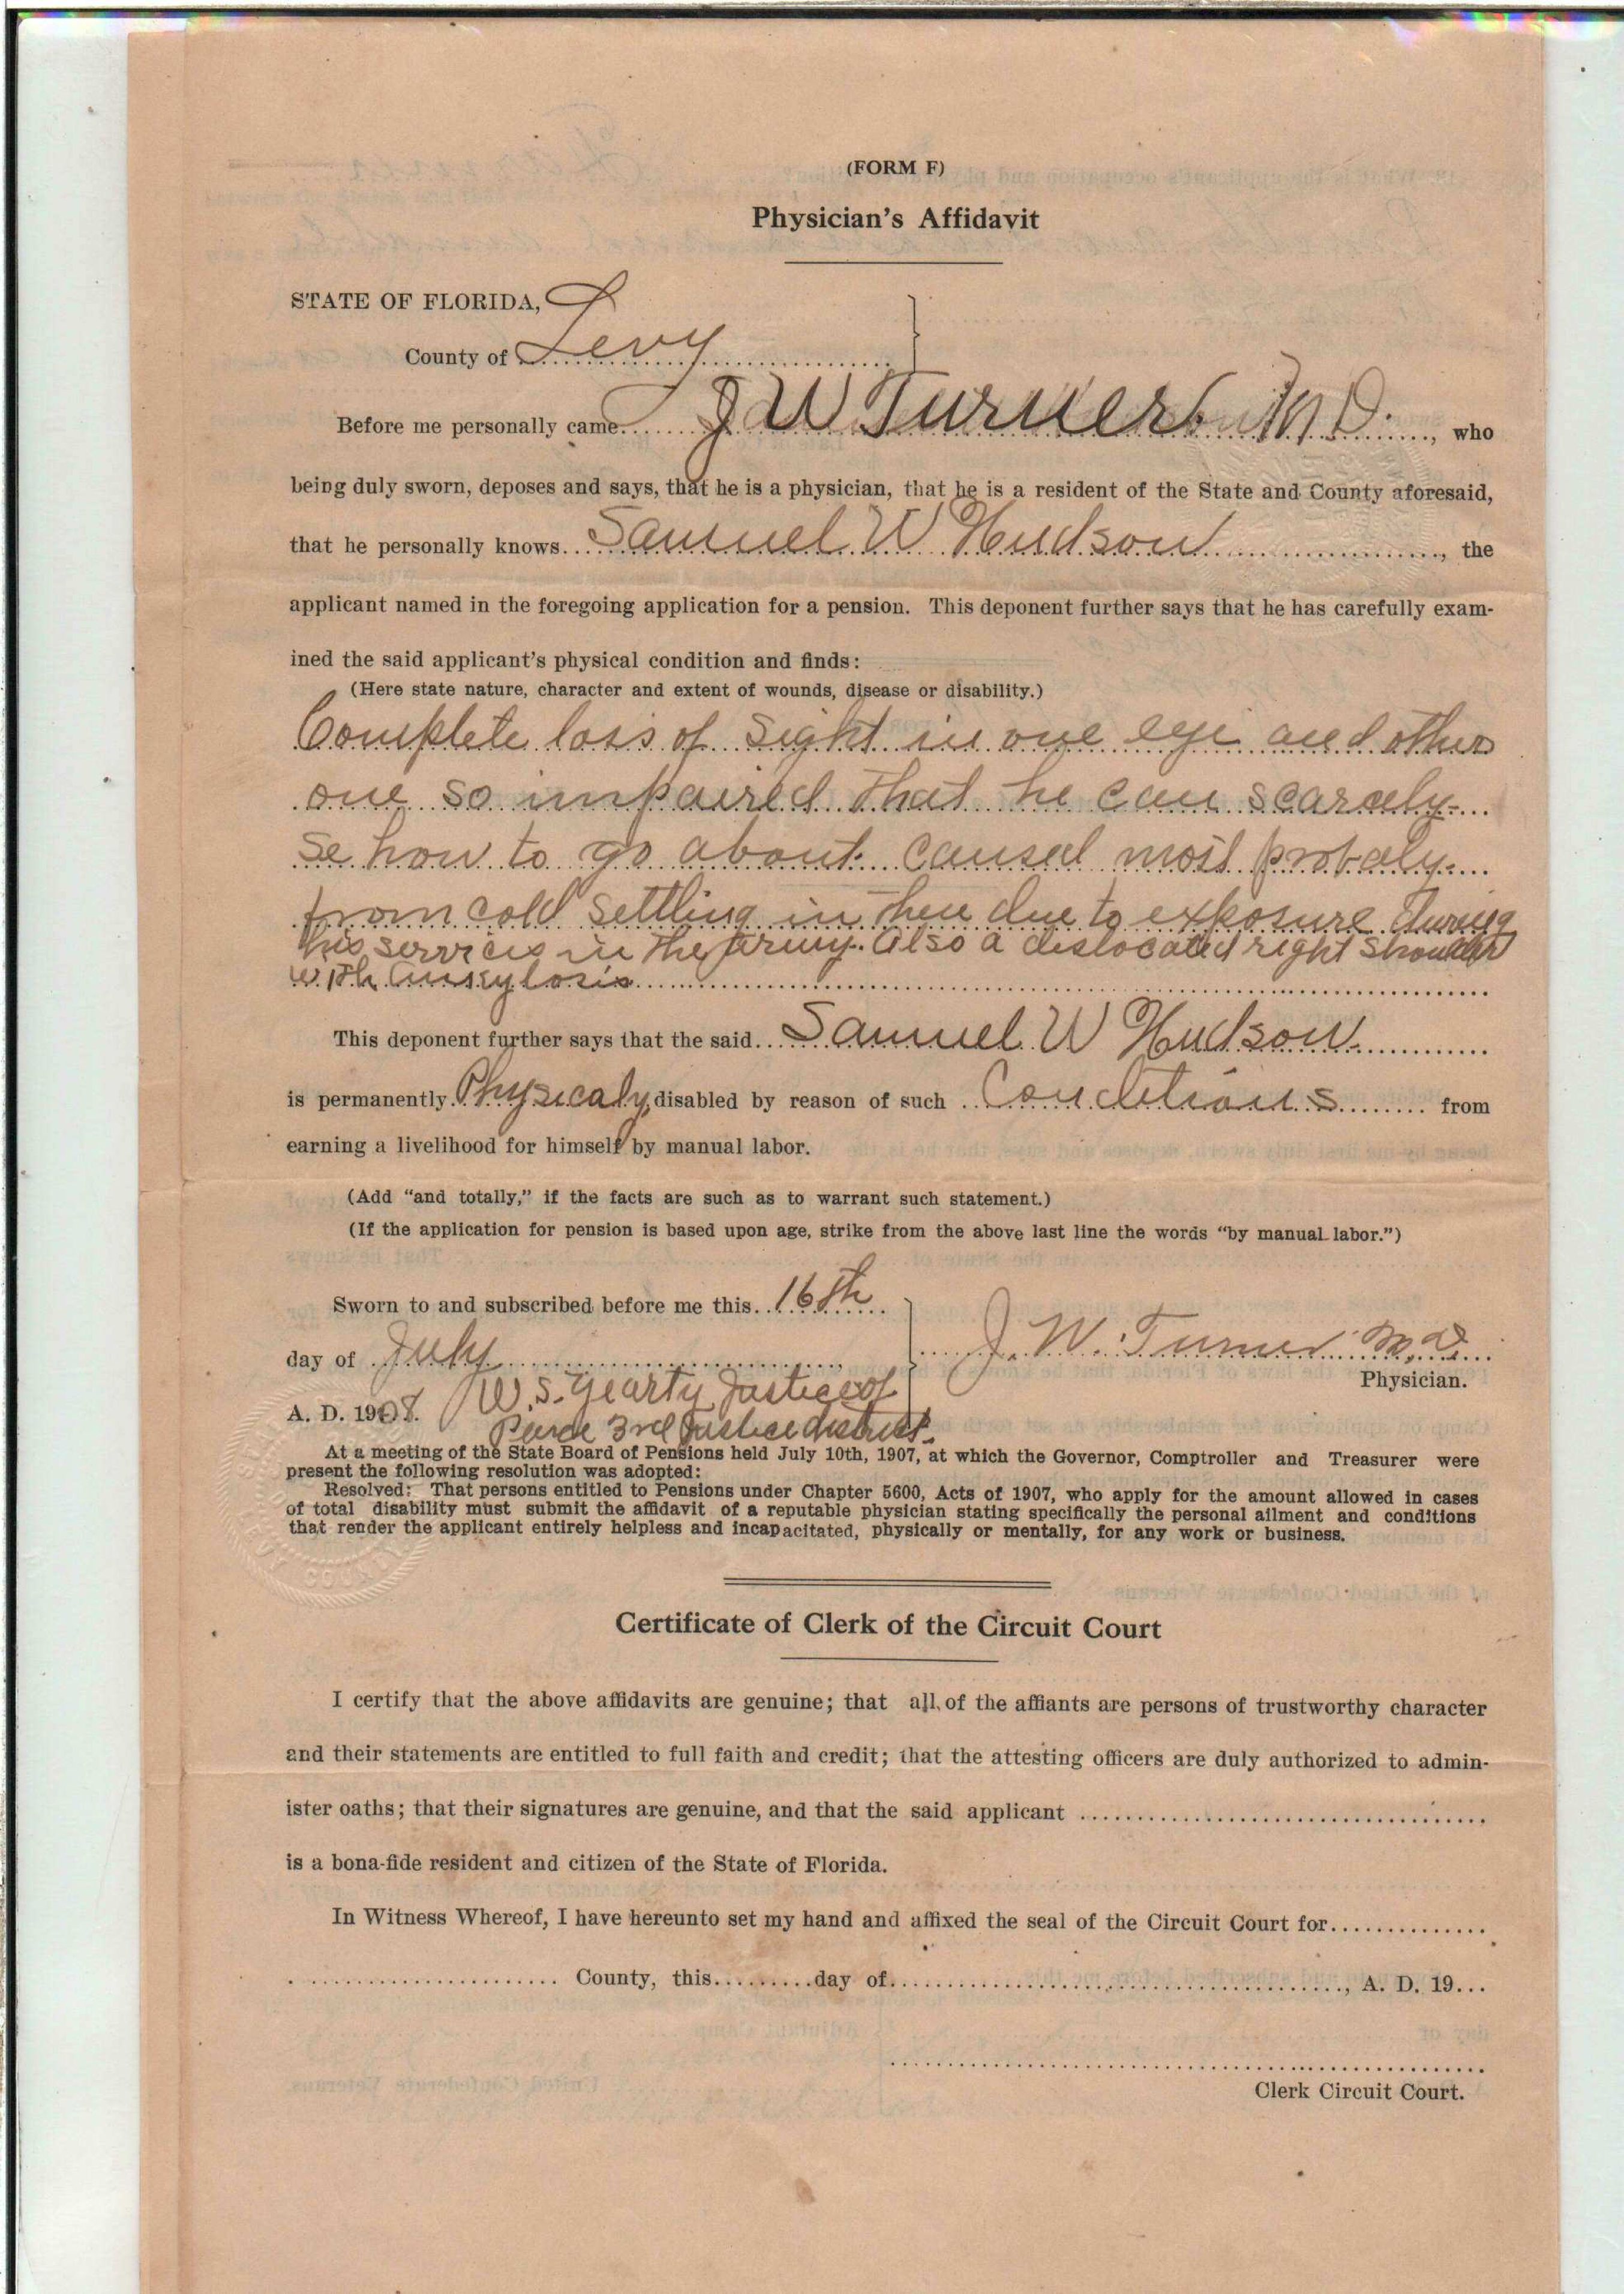 (FORM F)
Physician's Affidavit
STATE OF FLORIDA,
County of Levy
Before me personally came J W Turner M D., who
being duly sworn, deposes and says, that he is a physician, that he is a resident of the State and County aforesaid,
that he personally knows Samuel W Hudson, the
applicant named in the foregoing application for a pension. This deponent further says that he has carefully exam-
ined the said applicant's physical condition and finds:
(Here state nature, character and extent of wounds, disease or disability.)
Complete loss of sight in one eye and other
one so impaired that he can scarcely
se how to go about. caused most probaly
from cold settling in them due to exposure during
his services in the army. Also a dislocated right shoulder
with Ankylosis
This deponent further says that the said Samuel W Hudson
is permanently Physicaly disabled by reason of such Conditions from
earning a livelihood for himself by manual labor.
(Add "and totally," if the facts are such as to warrant such statement.)
(If the application for pension is based upon age, strike from the above last line the words "by manual labor.")
Sworn to and subscribed before me this 16th
day of July
J. W. Turner M.D.
Physician.
A. D. 1908. W. S. Yearty Justice of
Peace 3rd Justice district
At a meeting of the State Board of Pensions held July 10th, 1907, at which the Governor, Comptroller and Treasurer were
present the following resolution was adopted:
Resolved: That persons entitled to Pensions under Chapter 5600, Acts of 1907, who apply for the amount allowed in cases
of total disability must submit the affidavit of a reputable physician stating specifically the personal ailment and conditions
that render the applicant entirely helpless and incapacitated, physically or mentally, for any work or business.
Certificate of Clerk of the Circuit Court
I certify that the above affidavits are genuine; that all of the affiants are persons of trustworthy character
and their statements are entitled to full faith and credit; that the attesting officers are duly authorized to admin-
ister oaths; that their signatures are genuine, and that the said applicant
is a bona-fide resident and citizen of the State of Florida.
In Witness Whereof, I have hereunto set my hand and affixed the seal of the Circuit Court for
County, this day of, A. D. 19
Clerk Circuit Court.